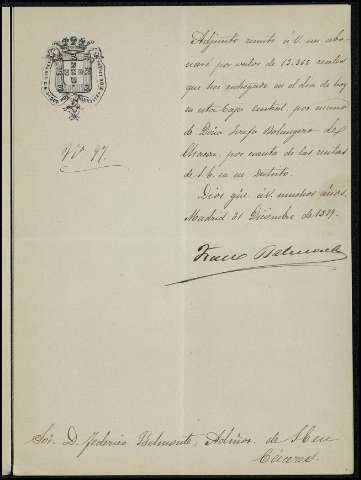 Nº 97.
Adjunto remito á V. un abo
naré por valor de 13.366 reales
que ha entregado en el dia de hoy
en esta Caja Central, por mano
de Doña Josefa Belenguero de
por cuenta de las rentas
de S.E. en su distrito.
Dios gue. á V. muchos años.
Madrid 31 Diciembre de 1879.
Belmonte
Sor. D. Federico Belmonte, Admor. de S.E. en
Cáceres.